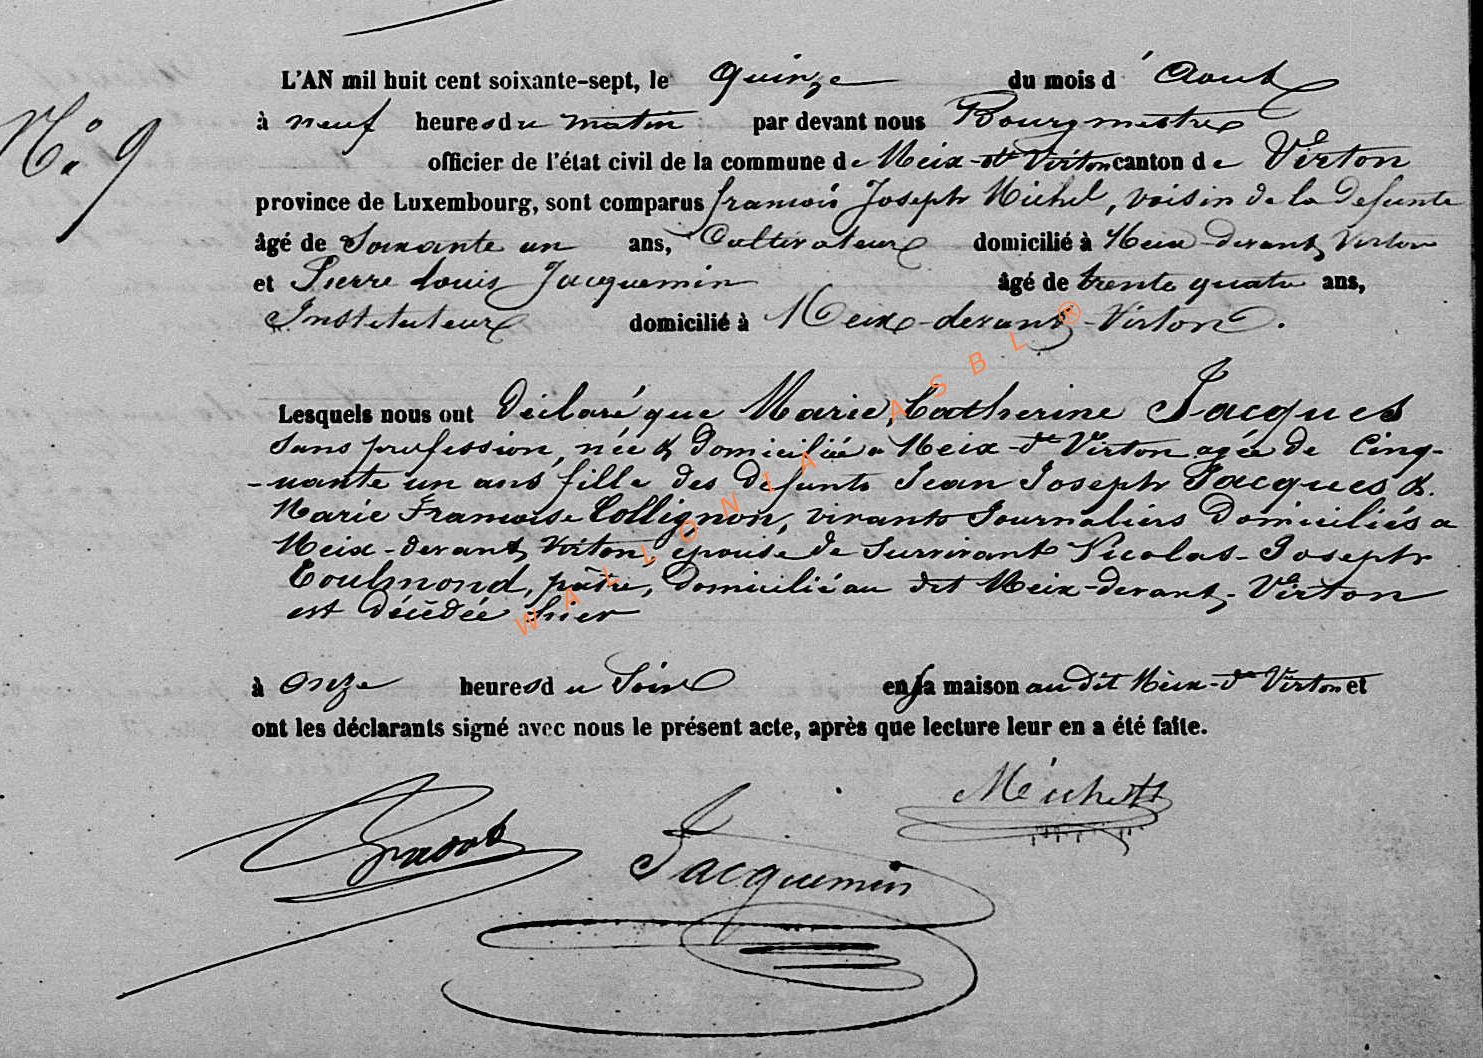 L'AN mil huit cent soixante-sept, le quinze du mois d'Aout
N.° 9
à neuf heures du matin par devant nous Bourgmestre
officier de l'état civil de la commune de Meix-dt Virton canton de Virton
province de Luxembourg, sont comparus francois Joseph Michel, voisin de la defunte
âgé de Soixante un ans, Cultivateur domicilié à Meix-devant Virton
et Pierre Louis Jacquemin âgé de trente quatre ans,
Instituteur domicilié à Meix-devant-Virton.
Lesquels nous ont déclaré que Marie Catherine Jacques
sans profession, née & domiciliée a Meix-dt Virton agée de Cinq-
-uante un ans fille des defunts Jean Joseph Jacques &
Marie Francoise Collignon, vivants Journaliers domiciliés a
Meix-devant Virton épouse de survivant Nicolas-Joseph
Toulmond, pâtre, domicilié au dit Meix-devant-Virton
est décédée hier
à onze heures du Soir en sa maison au dit Meix-dt Virton et
ont les déclarants signé avec nous le présent acte, après que lecture leur en a été faite.
Michel
Jacquemin
WALLONIA ASBL ®